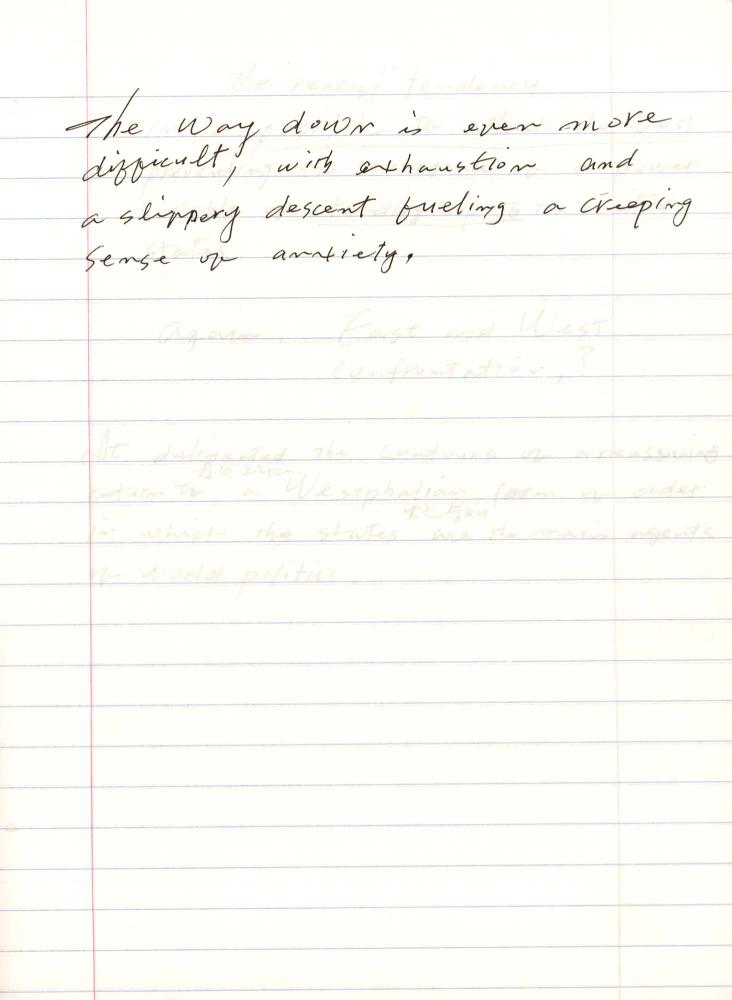 The way down is even more
difficult, with exhaustion and
a slippery descent fueling a creeping
sense of anxiety.
The "realist" tendency
Again, East and West
confrontation,?
It delineated the contours of a reassuring
return to a Westphalian form of order
in which the states are the main agents
of world politics.